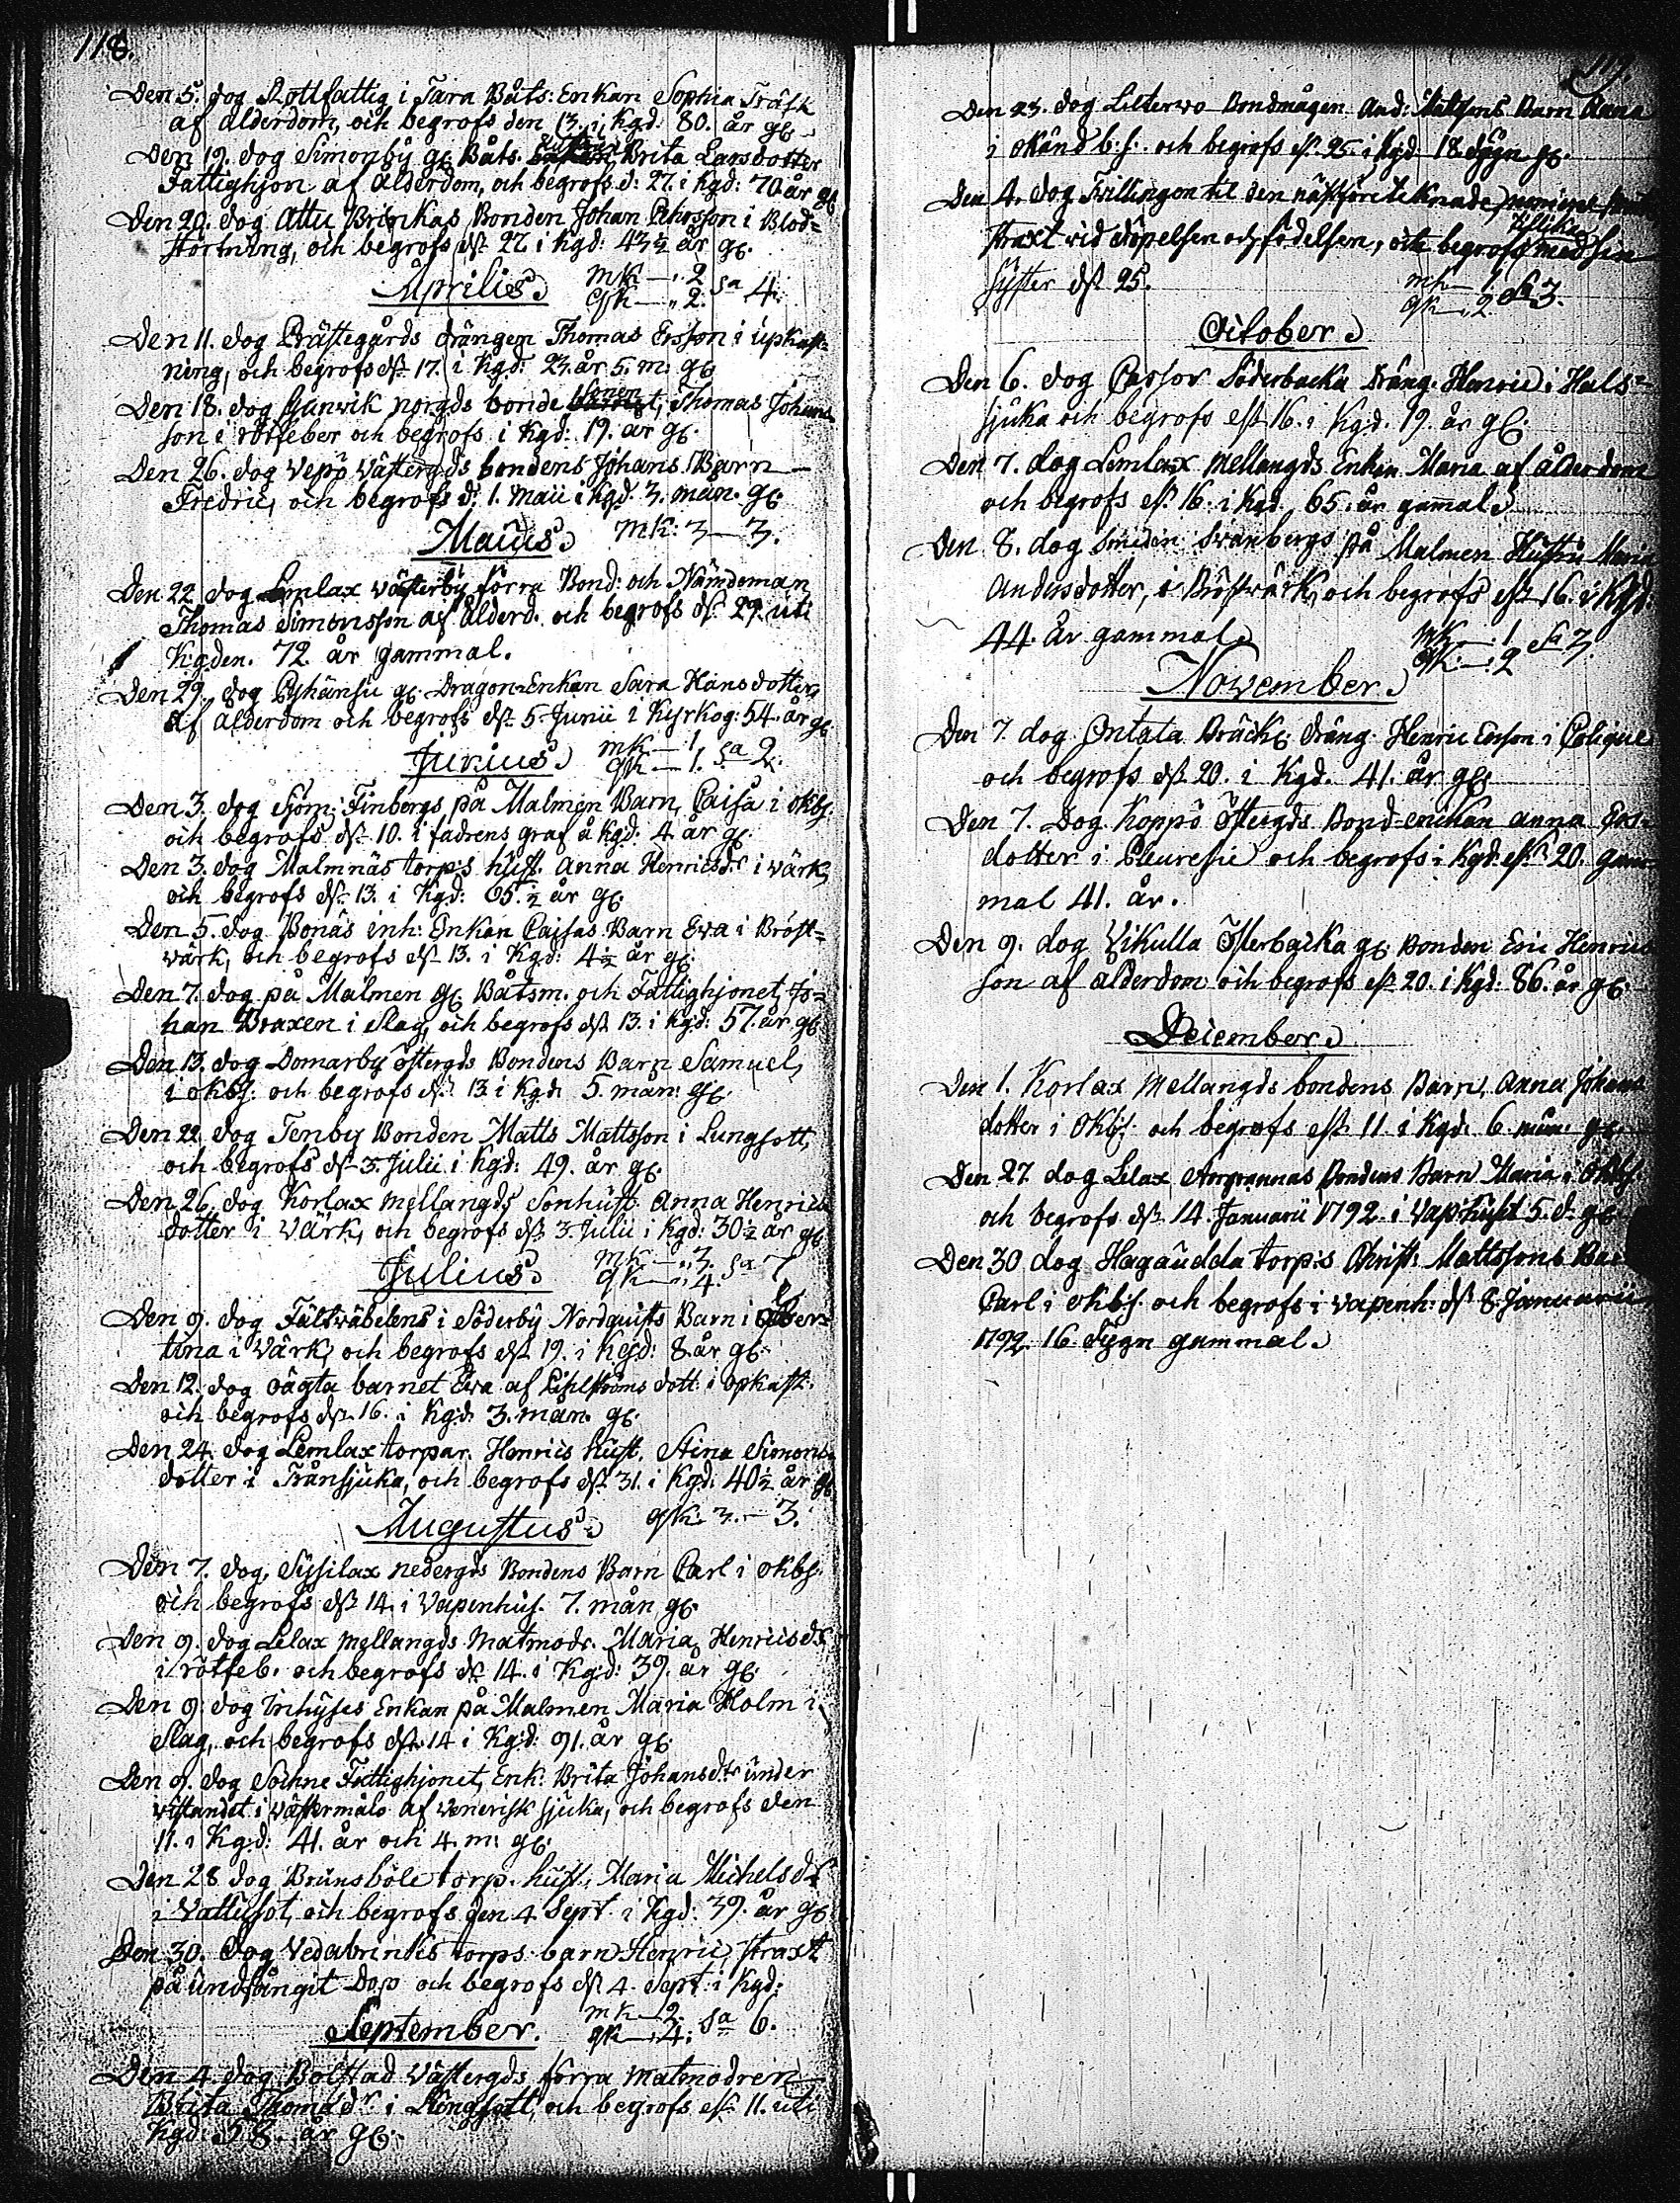 118.
Den 5. dog Rottfattig i Tara Båts: Enkan Sophia Träsk
af ålderdom, och begrofs den 13. i Kgd: 80. år gl.
Den 19. dog Simonby gl. Båts. Enkan, Brita Larsdotter
Fattighjon af ålderdom, och begrofs d: 27. i Kgd: 70 år gl.
Den 20. dog Attu Brinkas Bonden Johan Pehrsson i Blod-
störtning, och begrofs dst 27. i Kgd: 43 ½ år gl.
Aprilis. mK — 2 qK — 2. Sa 4.
Den 11. dog Prästegårds drängen Thomas Ersson i upkast-
ning, och begrofs dst 17. i Kgd: 23. år 5. m: gl.
Den 18. dog Gunvik norgds bonde sonen, Thomas Johans
son i rötfeber och begrofs i Kgd: 19. år gl.
Den 26. dog Vepö Västergds bondens Johans Barn
Fredric, och begrofs d: 1. Maii i Kgd. 3. mån. gl.
Maius. mK: 3 — 3.
Den 22 dog Lemlax Västerby förra Bond: och Nämdeman
Thomas Simonsson af ålderd. och begrofs dst 29. uti
Kgden. 72. år gammal.
Den 29. dog Pyhänsu gl. Dragon-Enkan Sara Hansdotter
af ålderdom och begrofs dst 5 Junii i Kyrkog: 54. år gl.
Junius. mK — 1 qK — 1. Sa 2.
Den 3. dog Sjöm: Finbergs på Malmen Barn, Caisa i okbs.
och begrofs dst 10. i fadrens graf å Kgd: 4. år gl.
Den 3. dog Malmnäs torp:s hust. Anna Henricsdr i värk,
och begrofs dst 13. i Kgd: 65. ½ år gl.
Den 5. dog Bonäs inh: Enkan Caisas Barn Eva i Bröst-
värk, och begrofs dst 13. i Kgd: 4 ½ år gl.
Den 7. dog på Malmen gl. Båtsm. och Fattighjonet, Jo-
han Braxen i Slag, och begrofs dst 13. i Kgd: 57. år gl.
Den 13. dog Domarby östergds Bondens Barn Samuel,
i okbs. och begrofs dst 13 i Kgd. 5. mån: gl.
Den 22. dog Tenby Bonden Matts Mattsson i Lungsott,
och begrofs dst 3. Julii i Kgd: 49. år gl.
Den 26. dog Korlax mellangds Sonhust. Anna Henrics
dotter i Värk, och begrofs dst 3. Julii i Kgd: 30 ½ år gl.
Julius. mK — 3. qK — 4. Sa 7
Den 9. dog Fältväbelens i Söderby Nordquists Barn Alber-
tina i Värk, och begrofs dst 19. i Kgd: 8. år gl.
Den 12. dog oägta barnet Eva af Lihlströms dott: i opkast.
och begrofs dst 16. i Kgd. 3. mån. gl.
Den 24. dog Lemlax torpar. Henrics hust. Stina Simons
dotter i Trånsjuka, och begrofs dst 31. i Kgd: 40 ½ år gl.
Augustus. qK: 3. — 3.
Den 7. dog Sysilax nedergds Bondens Barn Carl i okbs.
och begrofs dst 14. i Vapenhus. 7. mån gl.
Den 9. dog Lelax mellangds Matmodr. Maria Henricsdr
i rötfeb. och begrofs dst 14. i Kgd: 39. år gl.
Den 9. dog Inhyses Enkan på Malmen Maria Holm i
Slag, och begrofs dst 14 i Kgd: 91. år gl.
Den 9. dog Sockne Fattighjonet, Enk: Brita Johansdr under
vistandet i Västermålo af venerisk sjuka, och begrofs den
11. i Kgd: 41. år och 4. m: gl.
Den 28 dog Brunsböle torp. hust, Maria Michelsdr
i Vattusot, och begrofs den 4 Sept. i Kgd: 39. år gl.
Den 30. dog Vedabrinkis torps barn Henric, straxt
på undfångit Dop och begrofs dst 4. Sept. i Kgd:
September. mK — 2. qK — 4. Sa 6.
Den 4. dog Bolstad Västergds förra matmodren
Brita Thomædr. i Lungsott, och begrofs dst 11. uti
Kgd: 58. år gl.
119.
Den 23. dog Lilterwo Bondmågen And: Mattsons Barn Anna
i okänd b:s: och begrofs dst 25. i Kgd 18 dygn gl.
Den 4. dog Tvillingen til den näst före teknade,
straxt vid döpelsen och födelsen, och begrofs med sin
syster dst 25. mk — 1. qk — 2. Sa 3.
October.
Den 6. dog Cassor Söderbacka Dräng. Henric i Hals-
sjuka och begrofs dst 16. i Kgd. 19. år gl.
Den 7. dog Lemlax Mellangds Enkan Maria af ålderdom
och begrofs dst 16. i Kgd. 65. år gammal.
Den 8. dog smeden Svanbergs på Malmen Hustru Maria
Andersdotter, i Bröstvärk, och begrofs dst 16. i Kgd:
44. år gammal. mK — 1. qK — 2 Sa 3.
November.
Den 7. dog Ontala Bräcks dräng Henric Ersson i Colique
och begrofs dst 20. i Kgd. 41. år gl.
Den 7. Dog. Koppö Östergds Bond-enckan Anna
dotter i Pleuresie och begrofs i Kgd. dst 20. gam-
mal 41. år.
Den 9. dog Vikulla Österbacka gl. Bonden Eric Henrics
son af ålderdom och begrofs dst 20. i Kgd: 86. år gl.
December.
Den 1. Korlax Mellangds bondens Barn, Anna Johans
dotter i Okbs. och begrofs dst 11. i Kgd. 6. mån. gl.
Den 27 dog Lelax Bondens Barn Maria i Okbs.
och begrofs dst 14. Januarii 1792. i Vap:huset 5. d. gl.
Den 30 dog Hagaudda torp:s Christ: Mattssons
Carl i okbs. och begrofs i vapenh. dst 8. Januarii
1792. 16. dygn gammal.